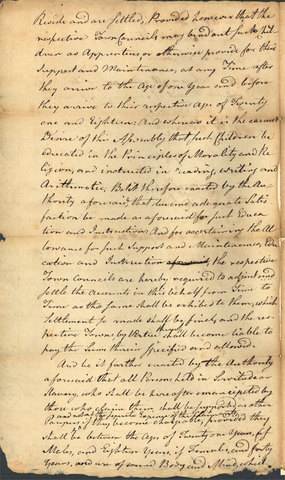 Reside and are settled, Provided however that the
respective Town Councils may bind out such Chil-
dren as Apprentices or otherwise provide for their
Support and Maintenance, at any Time after
they arrive to the Age of one Year and before
they arrive to their respective Ages of Twenty
one and Eighteen: And whereas it is the earnest
Desire of this Assembly that such Children be
educated in the Principles of Morality and Re
ligion, and instructed in reading, writing and
Arithmetic, Be it therefore enacted by the Au-
thority aforesaid that due and adequate Satis
faction be made as aforesaid for such Educa
tion and Instruction. And for ascertaining the Al
lowance for such Support and Maintenance, Edu
cation and Instruction the respective
Town Councils are hereby required to adjust and
settle the Accounts in this behalf from Time to
Time as the same shall be exhibited to them, which
Settlement so made shall be final, and the res-
pective Towns by Virtue thereof shall become liable to
pay the Sums therein specified and allowed.
And be it further enacted by the Authority
aforesaid that all Persons held in Servitude or
Slavery, who shall be hereafter emancipated by
those who claim them shall be supported as other
Paupers
if they become chargeable, provided they
shall be between the Ages of Twenty one Years, if
Males, and Eighteen Years, if Females, and forty
Years, and are of sound Body and Mind, which